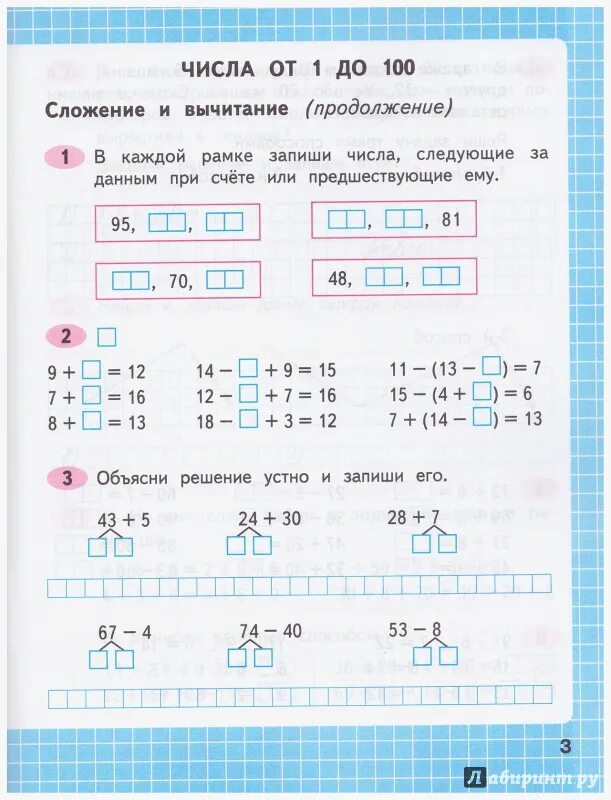 ЧИСЛА ОТ 1 ДО 100
Сложение и вычитание (продолжение)
1 В каждой рамке запиши числа, следующие за
данным при счёте или предшествующие ему.
95, □□, □□
□□, □□, 81
□□, 70, □□
48, □□, □□
2 □
9 + □ = 12 14 − □ + 9 = 15 11 − (13 − □) = 7
7 + □ = 16 12 − □ + 7 = 16 15 − (4 + □) = 6
8 + □ = 13 18 − □ + 3 = 12 7 + (14 − □) = 13
3 Объясни решение устно и запиши его.
43 + 5 24 + 30 28 + 7
67 − 4 74 − 40 53 − 8
3
Лабиринт.ру